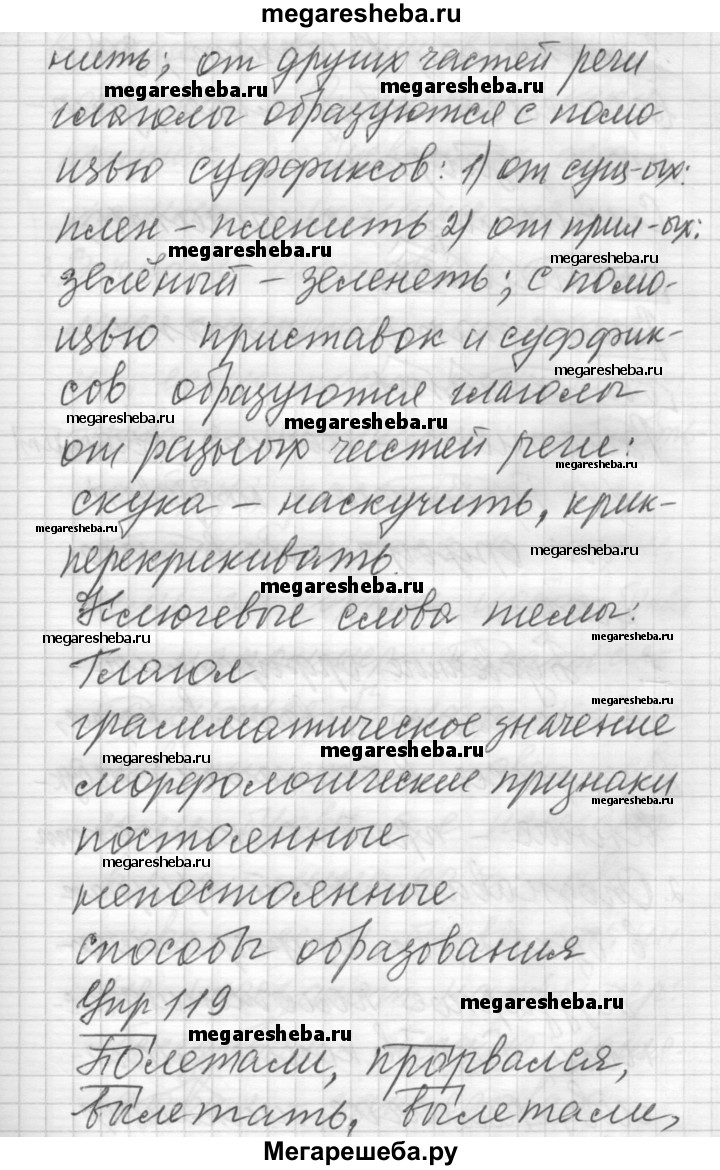 megaresheba.ru
нить; от других частей речи
megaresheba.ru megaresheba.ru
глаголы образуются с помо
щью суффиксов: 1) от сущ-ых:
плен - пленить 2) от прил-ых:
megaresheba.ru megaresheba.ru
зелёный - зеленеть; с помо-
щью приставок и суффик-
megaresheba.ru
сов образуются глаголы
megaresheba.ru megaresheba.ru
от разных частей речи:
megaresheba.ru
скука - наскучить, крик-
megaresheba.ru megaresheba.ru
перекрикивать.
megaresheba.ru
Ключевые слова темы:
megaresheba.ru megaresheba.ru
Глагол
megaresheba.ru
грамматическое значение
megaresheba.ru megaresheba.ru
морфологические признаки
megaresheba.ru
постоянные
megaresheba.ru
непостоянные
способы образования
Упр 119
megaresheba.ru
megaresheba.ru
Полетали, прорвался,
вылетать, вылетали,
Мегарешеба.ру